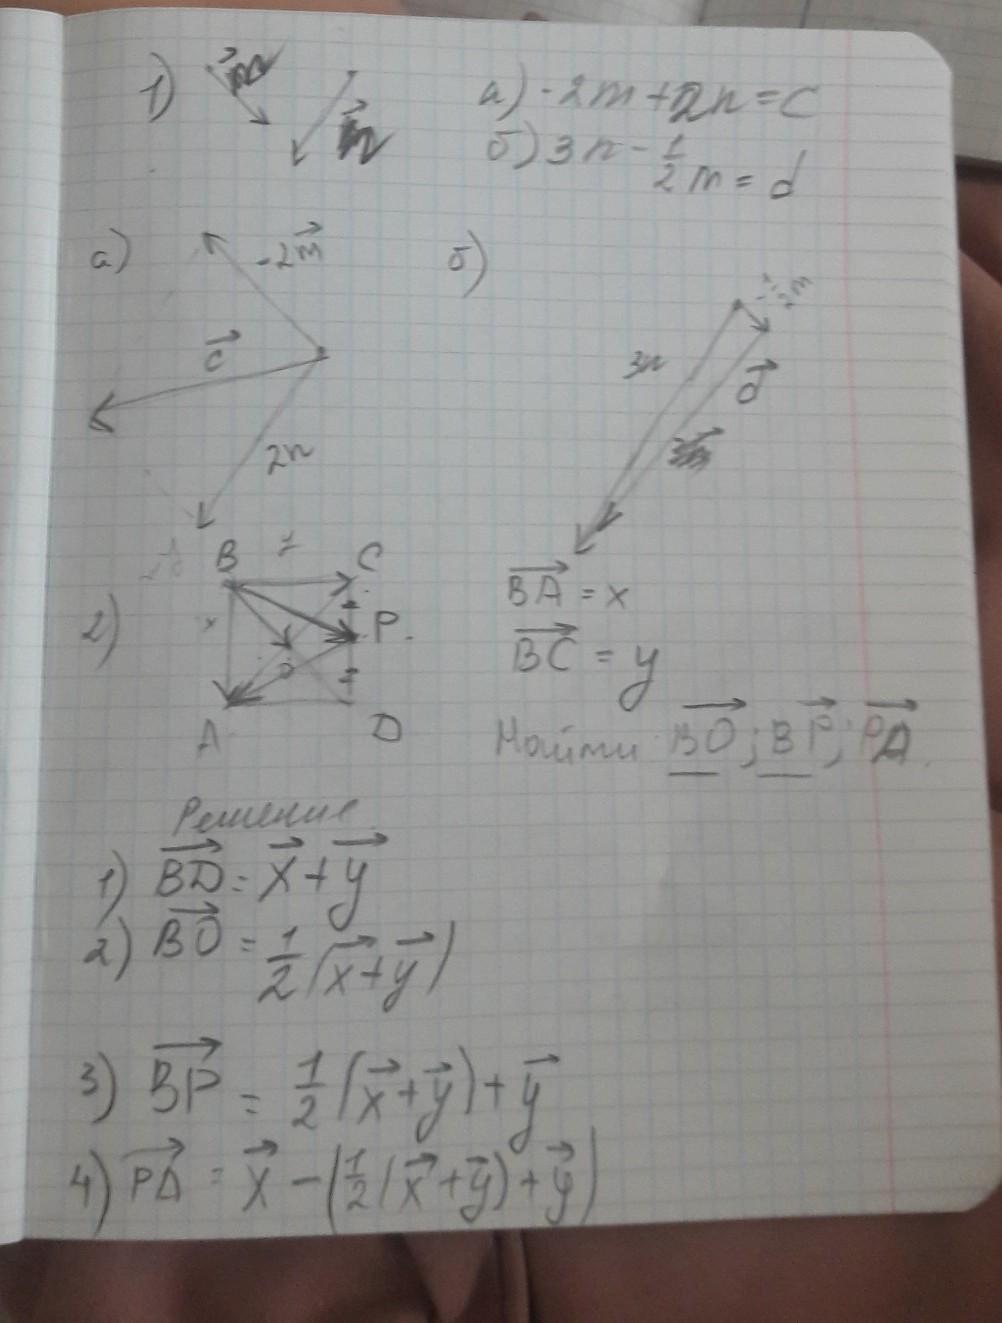 1) а) -2m + 2n = c
б) 3n - 1/2 m = d
а) -2m⃗ б)
c⃗ 3n d⃗
2n
B C
2) x P
O
A D
BA⃗ = x
BC⃗ = y
Найти BO⃗; BP⃗; PA⃗.
Решение
1) BD⃗ = x⃗ + y⃗
2) BO⃗ = 1/2 (x⃗ + y⃗)
3) BP⃗ = 1/2 (x⃗ + y⃗) + y⃗
4) PA⃗ = x⃗ - (1/2 (x⃗ + y⃗) + y⃗)